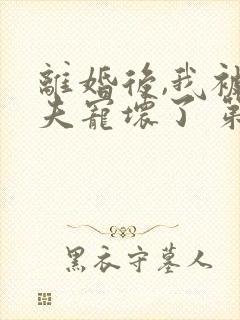 離婚後,我被
夫寵壞了 第
黑衣守墓人